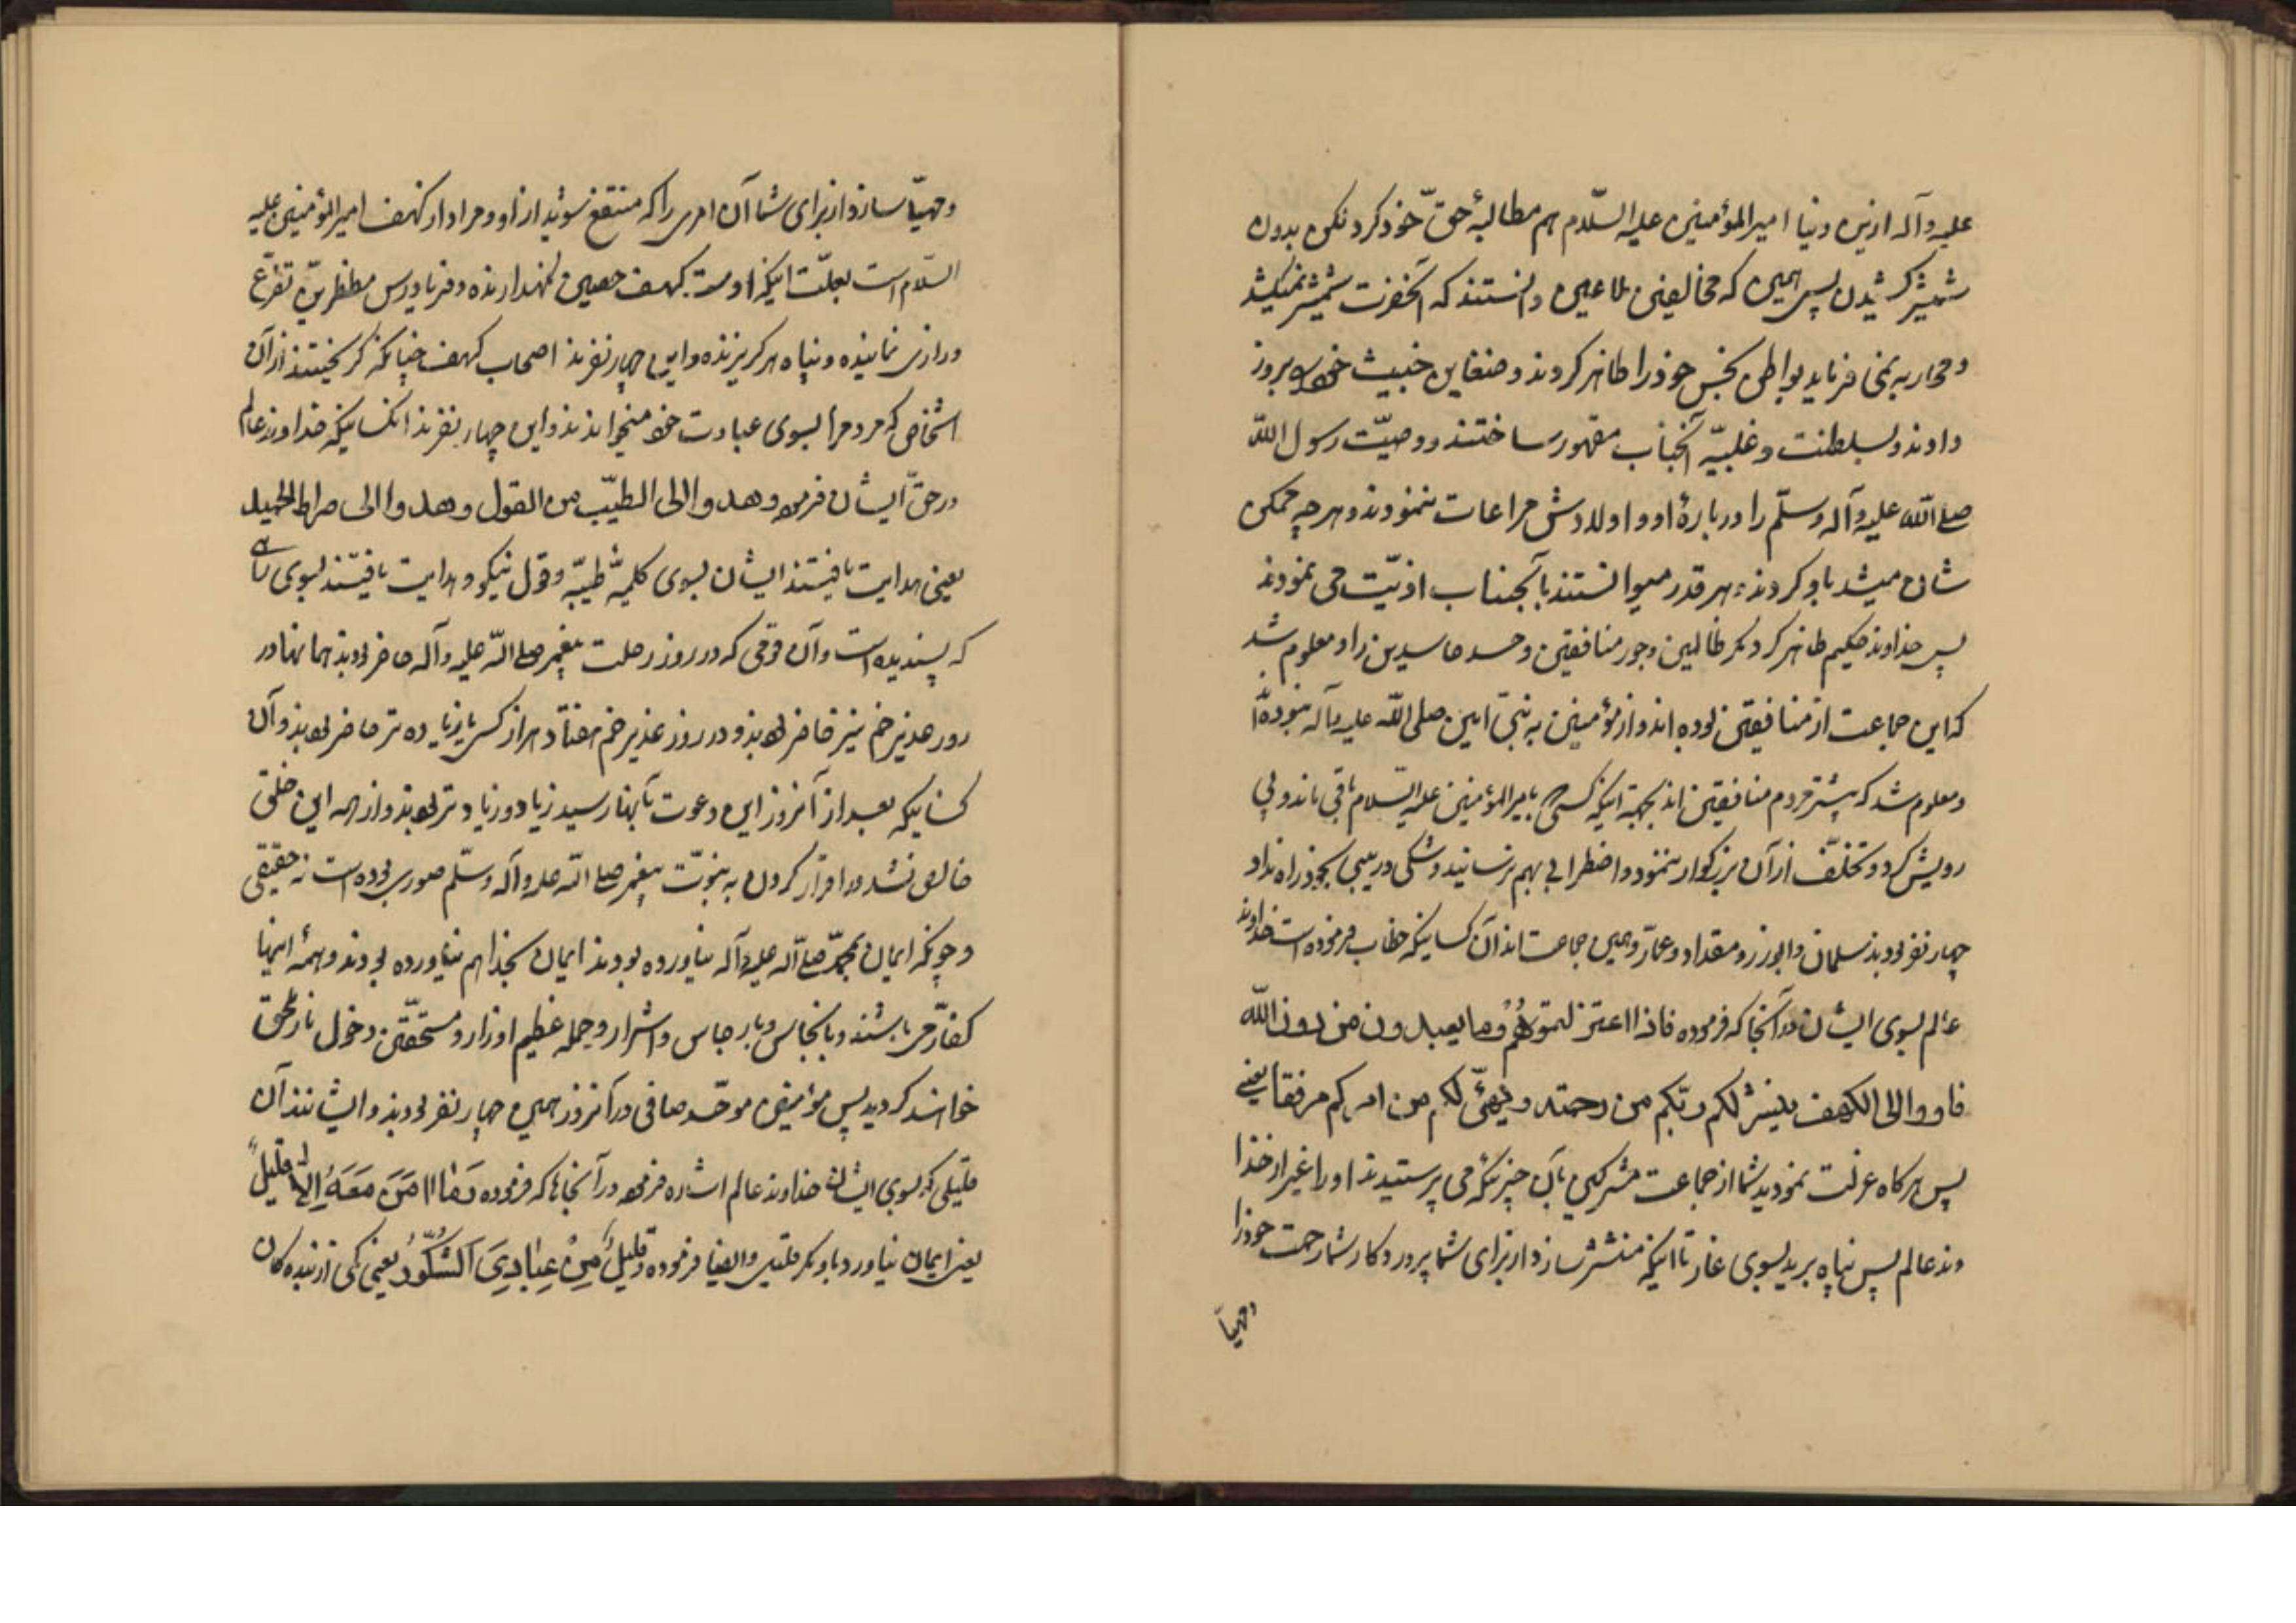 علیه وآله ازین دنیا امیرالمؤمنین علیه السّلام هم مطالبهٔ حقّ خود کرد لکن بدون
شمشیر کشیدن پس همین که مخالفین ملاعین دانستند که آنحضرت شمشیر نمیکشد
و محاربه نمی فرماید بواطن نجس خود را ظاهر کردند و ضغاین خبیث خود بروز
دادند و بسلطنت و غلبهٔ آنجناب مقهور ساختند و وصیّت رسول الله
صلی الله علیه وآله وسلّم را در بارهٔ او و اولادش مراعات ننمودند و هر چه ممکن
شان میشد باو کردند و هر قدر میتوانستند بآنجناب اذیّت می نمودند
پس خداوند حکیم ظاهر کرد مکر ظالمین و جور منافقین و حسد حاسدین را و معلوم شد
که این جماعت از منافقین بوده اند و از مؤمنین به نبی امین صلی الله علیه وآله نبوده‌اند
و معلوم شد که بیشتر مردم منافقین اند بجهة اینکه کسی با امیرالمؤمنین علیه السّلام باقی نماند و پی
رویش کرد و تخلّف از آن بزرگوار ننمود و اضطرابی بهم نرسانید و شکی و ریبی بخود راه نداد
چهار نفر بودند سلمان و ابوذر و مقداد و عمّار و همین جماعت اند آن کسانیکه خطاب فرموده است خداوند
عالم بسوی ایشان در آنجا که فرموده فاذا اعتزلتموهُمْ وما یعبدون من دون الله
فاووا الی الکهف ینشر لکم ربّکم من رحمته ویهیّئ لکم من امرکم مرفقا یعنی
پس هرکاه عزلت نمودید شما از جماعت مشرکین بآن چیزیکه می پرستیدند او را غیر از خدا
وند عالم پس پناه برید بسوی غار تا اینکه منتشر سازد از برای شما پروردکار شما رحمت خود را
و مهیّا
و مهیّا سازد از برای شما آن امری را که منتفع شوید از او و مراد از کهف امیرالمؤمنین علیه
السّلام است بعلّت اینکه اوست کهف حصین نکهدارنده و فریادرس مضطرین تضرّع
و زاری نماینده و پناه هر کریزنده و این چهار نفرند اصحاب کهف چنانکه کریختند از آن
اشخاص که مردم را بسوی عبادت خود میخواندند و این چهار نفرند آنکسانیکه خداوند عالم
در حقّ ایشان فرموده وهدوا الی الطیّب من القول وهدوا الی صراط الحمید
یعنی هدایت یافتند ایشان بسوی کلمهٔ طیّبه و قول نیکو و هدایت یافتند بسوی راهی
که پسندیده است و آن قومی که در روز رحلت پیغمبر صلی الله علیه وآله حاضر بودند همانها در
روز غدیر خم نیز حاضر بودند و در روز غدیر خم هفتاد هزار کس یا زیاده تر حاضر بودند و آن
کسانیکه بعد از آنروز این دعوت بآنها رسید زیاد و زیادتر بودند و از همه این خلق
خالص نشد و اقرار کردن به نبوّت پیغمبر صلی الله علیه وآله وسلّم صوری بوده است نه حقیقی
و چونکه ایمان بمحمّد صلی الله علیه وآله نیاورده بودند ایمان بخدا هم نیاورده بودند و همهٔ اینها
کفّار می باشند و با نجاس و با رجاس و اشرار و حمله عظیم اوزار و مستحقّین دخول نار محقّق
خواهند کردید پس مؤمنین موحّد صافی در آنروز همین چهار نفر بودند و ایشانند آن
قلیلی که بسوی ایشان خداوند عالم اشاره فرموده در آنجاها که فرموده وَمٰا اٰمَنَ مَعَهُ اِلاّ قلیلٌ
یعنی ایمان نیاورد باو مکر قلیلی و ایضا فرموده وقلیلٌ مِنْ عِبٰادِیَ الشَّکُورُ یعنی کمی از بنده کان